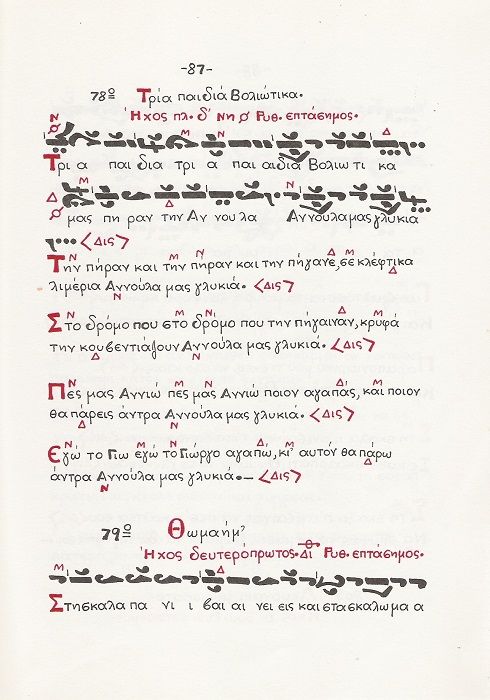 -87-
78º Τρία παιδιά Βολιώτικα.
Ηχος πλ. δ' Νη Ρυθ. επτάσημος.
Τρι α παι δια τρι α παι αιδιά Βολιω τι κα
μας πη ραν την Αν νουλα Αννούλα μας γλυκια
<Δις>
Την πήραν και την πήραν και την πήγανε, σε κλέφτικα
λιμέρια Αννούλα μας γλυκιά. <Δις>
Στο δρόμο που στο δρόμο που την πήγαιναν, κρυφά
την κουβεντιάζουν Αννούλα μας γλυκιά. <Δις>
Πες μας Αννιώ πες μας Αννιώ ποιον αγαπάς, και ποιον
θα πάρεις άντρα Αννούλα μας γλυκιά. <Δις>
Εγώ το Γιω εγώ το Γιώργο αγαπω, κι' αυτόν θα πάρω
άντρα Αννούλα μας γλυκιά.- <Δις>
79º Θωμαήμ'
Ήχος δευτερόπρωτος. Δι Ρυθ. επτάσημος.
Στησκαλα πα νι ι βαι αι νει εις και στασκαλωμα α